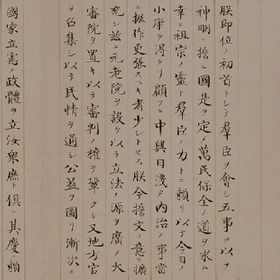 朕即位ノ初首トシテ群臣ヲ會シ五事ヲ以テ
神明ニ誓ヒ國是ヲ定メ萬民保全ノ道ヲ求ム
幸ニ祖宗ノ靈ト群臣ノ力トニ賴リ以テ今日ノ
小康ヲ得タリ顧ニ中興日淺ク内治ノ事當
ニ振作更張スヘキ者少シトセス朕今誓文ノ意ヲ擴
充シ茲ニ元老院ヲ設ケ以テ立法ノ源ヲ廣メ大
審院ヲ置キ以テ審判ノ權ヲ鞏クシ又地方官
ヲ召集シ以テ民情ヲ通シ公益ヲ圖リ漸次ニ
國家立憲ノ政體ヲ立汝衆庶ト俱ニ其慶ニ賴